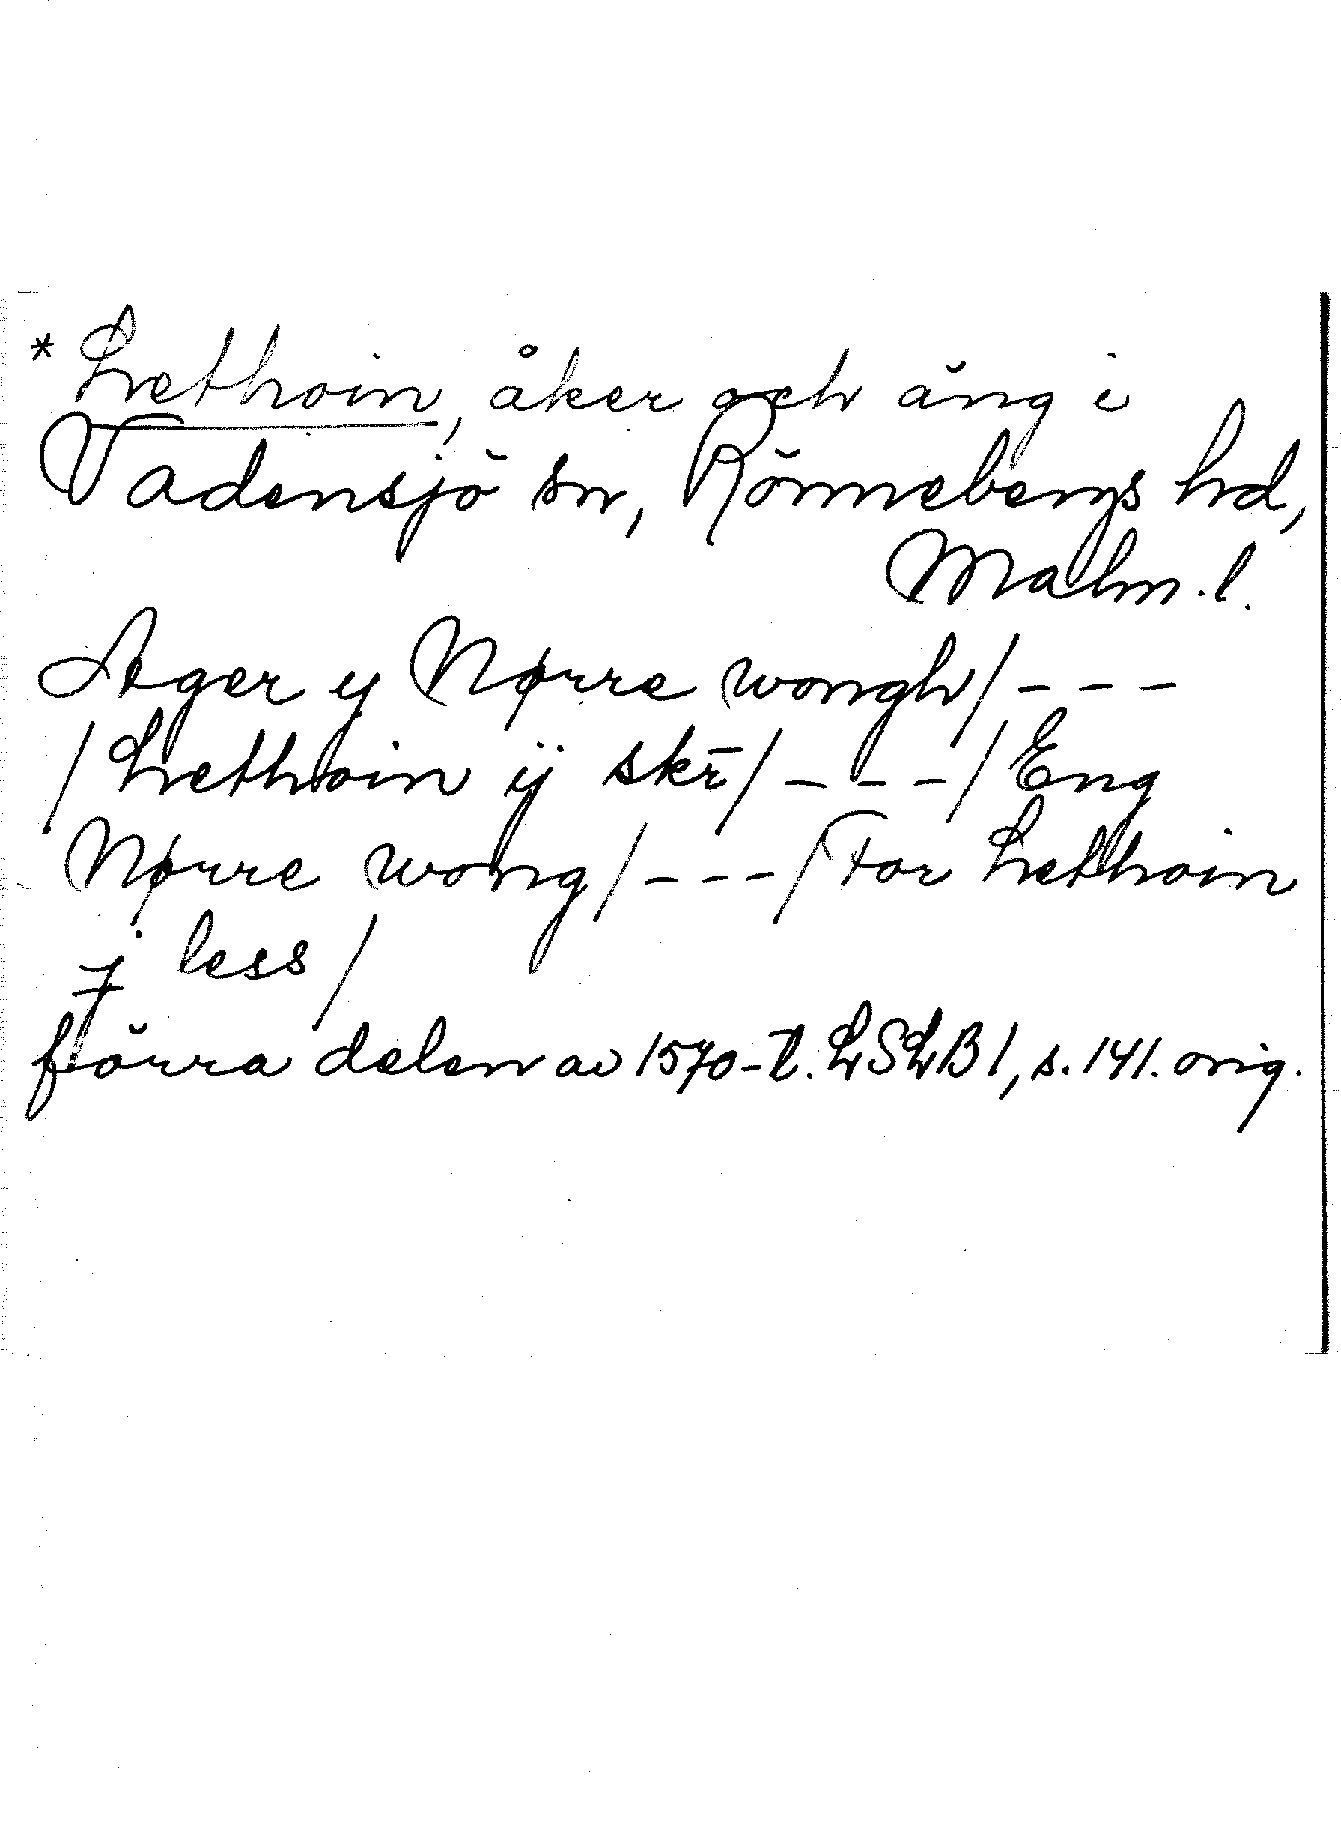 *Lethoin, åker och äng i
Vadensjö sn, Rönnebergs hd,
Malm. l.
Ager y Nørre wongh/---
/Lethoin ij skr̄/---/Eng
Nørre wong/---/For Lethoin
j less/
förra delen av 1570-t. LSLB 1, s. 141. orig.